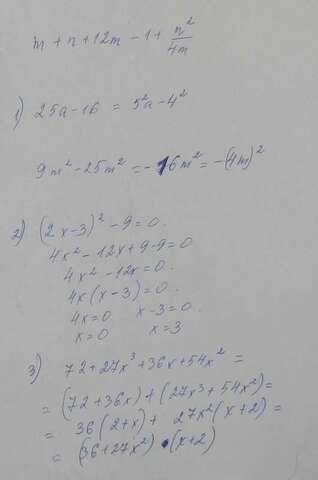 m + n + 12m - 1 + n²/4m
1) 25a - 16 = 5²a - 4²
9m² - 25m² = - 16m² = -(4m)²
2) (2x-3)² - 9 = 0.
4x² - 12x + 9 - 9 = 0
4x² - 12x = 0.
4x(x - 3) = 0.
4x = 0 x - 3 = 0.
x = 0 x = 3
3) 72 + 27x³ + 36x + 54x² =
= (72 + 36x) + (27x³ + 54x²) =
= 36(2 + x) + 27x²(x + 2) =
= (36 + 27x²) · (x + 2)